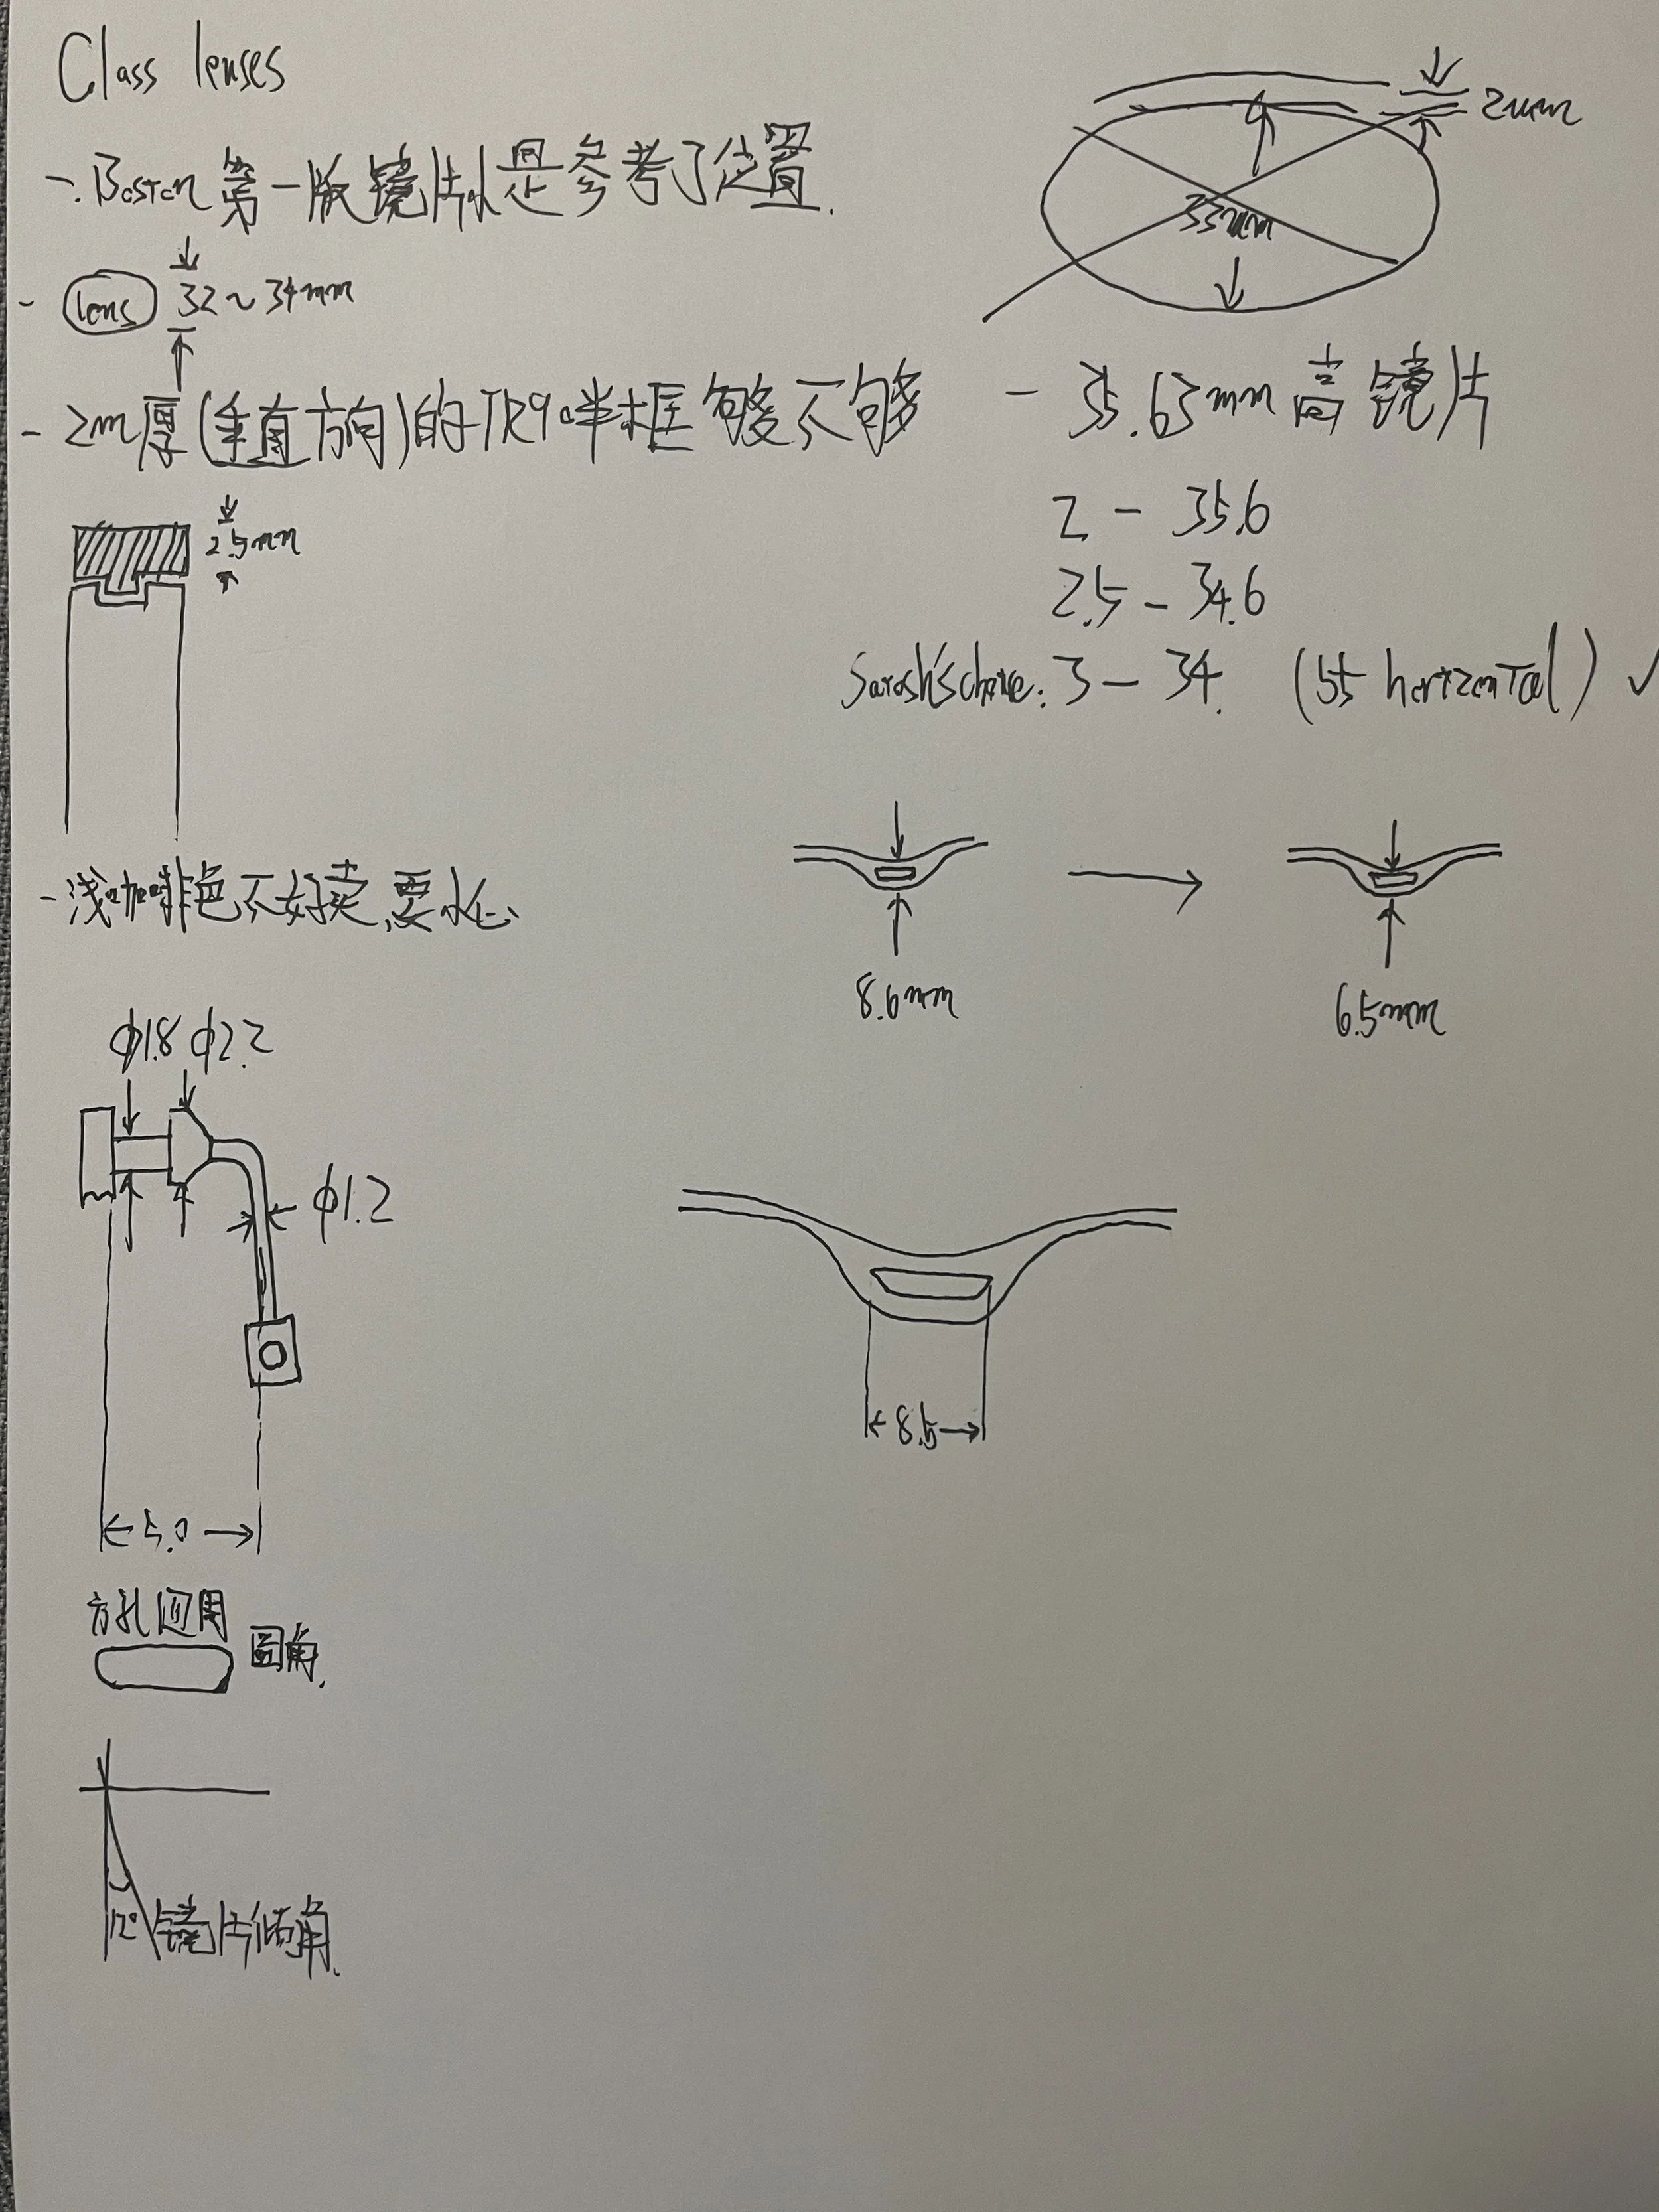 Class lenses
- Boston 第一版镜片 是参考了位置.
- lens 32~34mm
- 2m厚(垂直方向)的TR90半框够不够
2.5mm
- 浅咖啡色不好卖,要
φ1.8 φ2.2
φ1.2
5.0
方孔四周
圆角.
12° 镜片倾角.
2mm
33mm
- 35.63mm高镜片
2 - 35.6
2.5 - 34.6
3 - 34. (55 horizontal) ✓
8.6mm
6.5mm
8.5